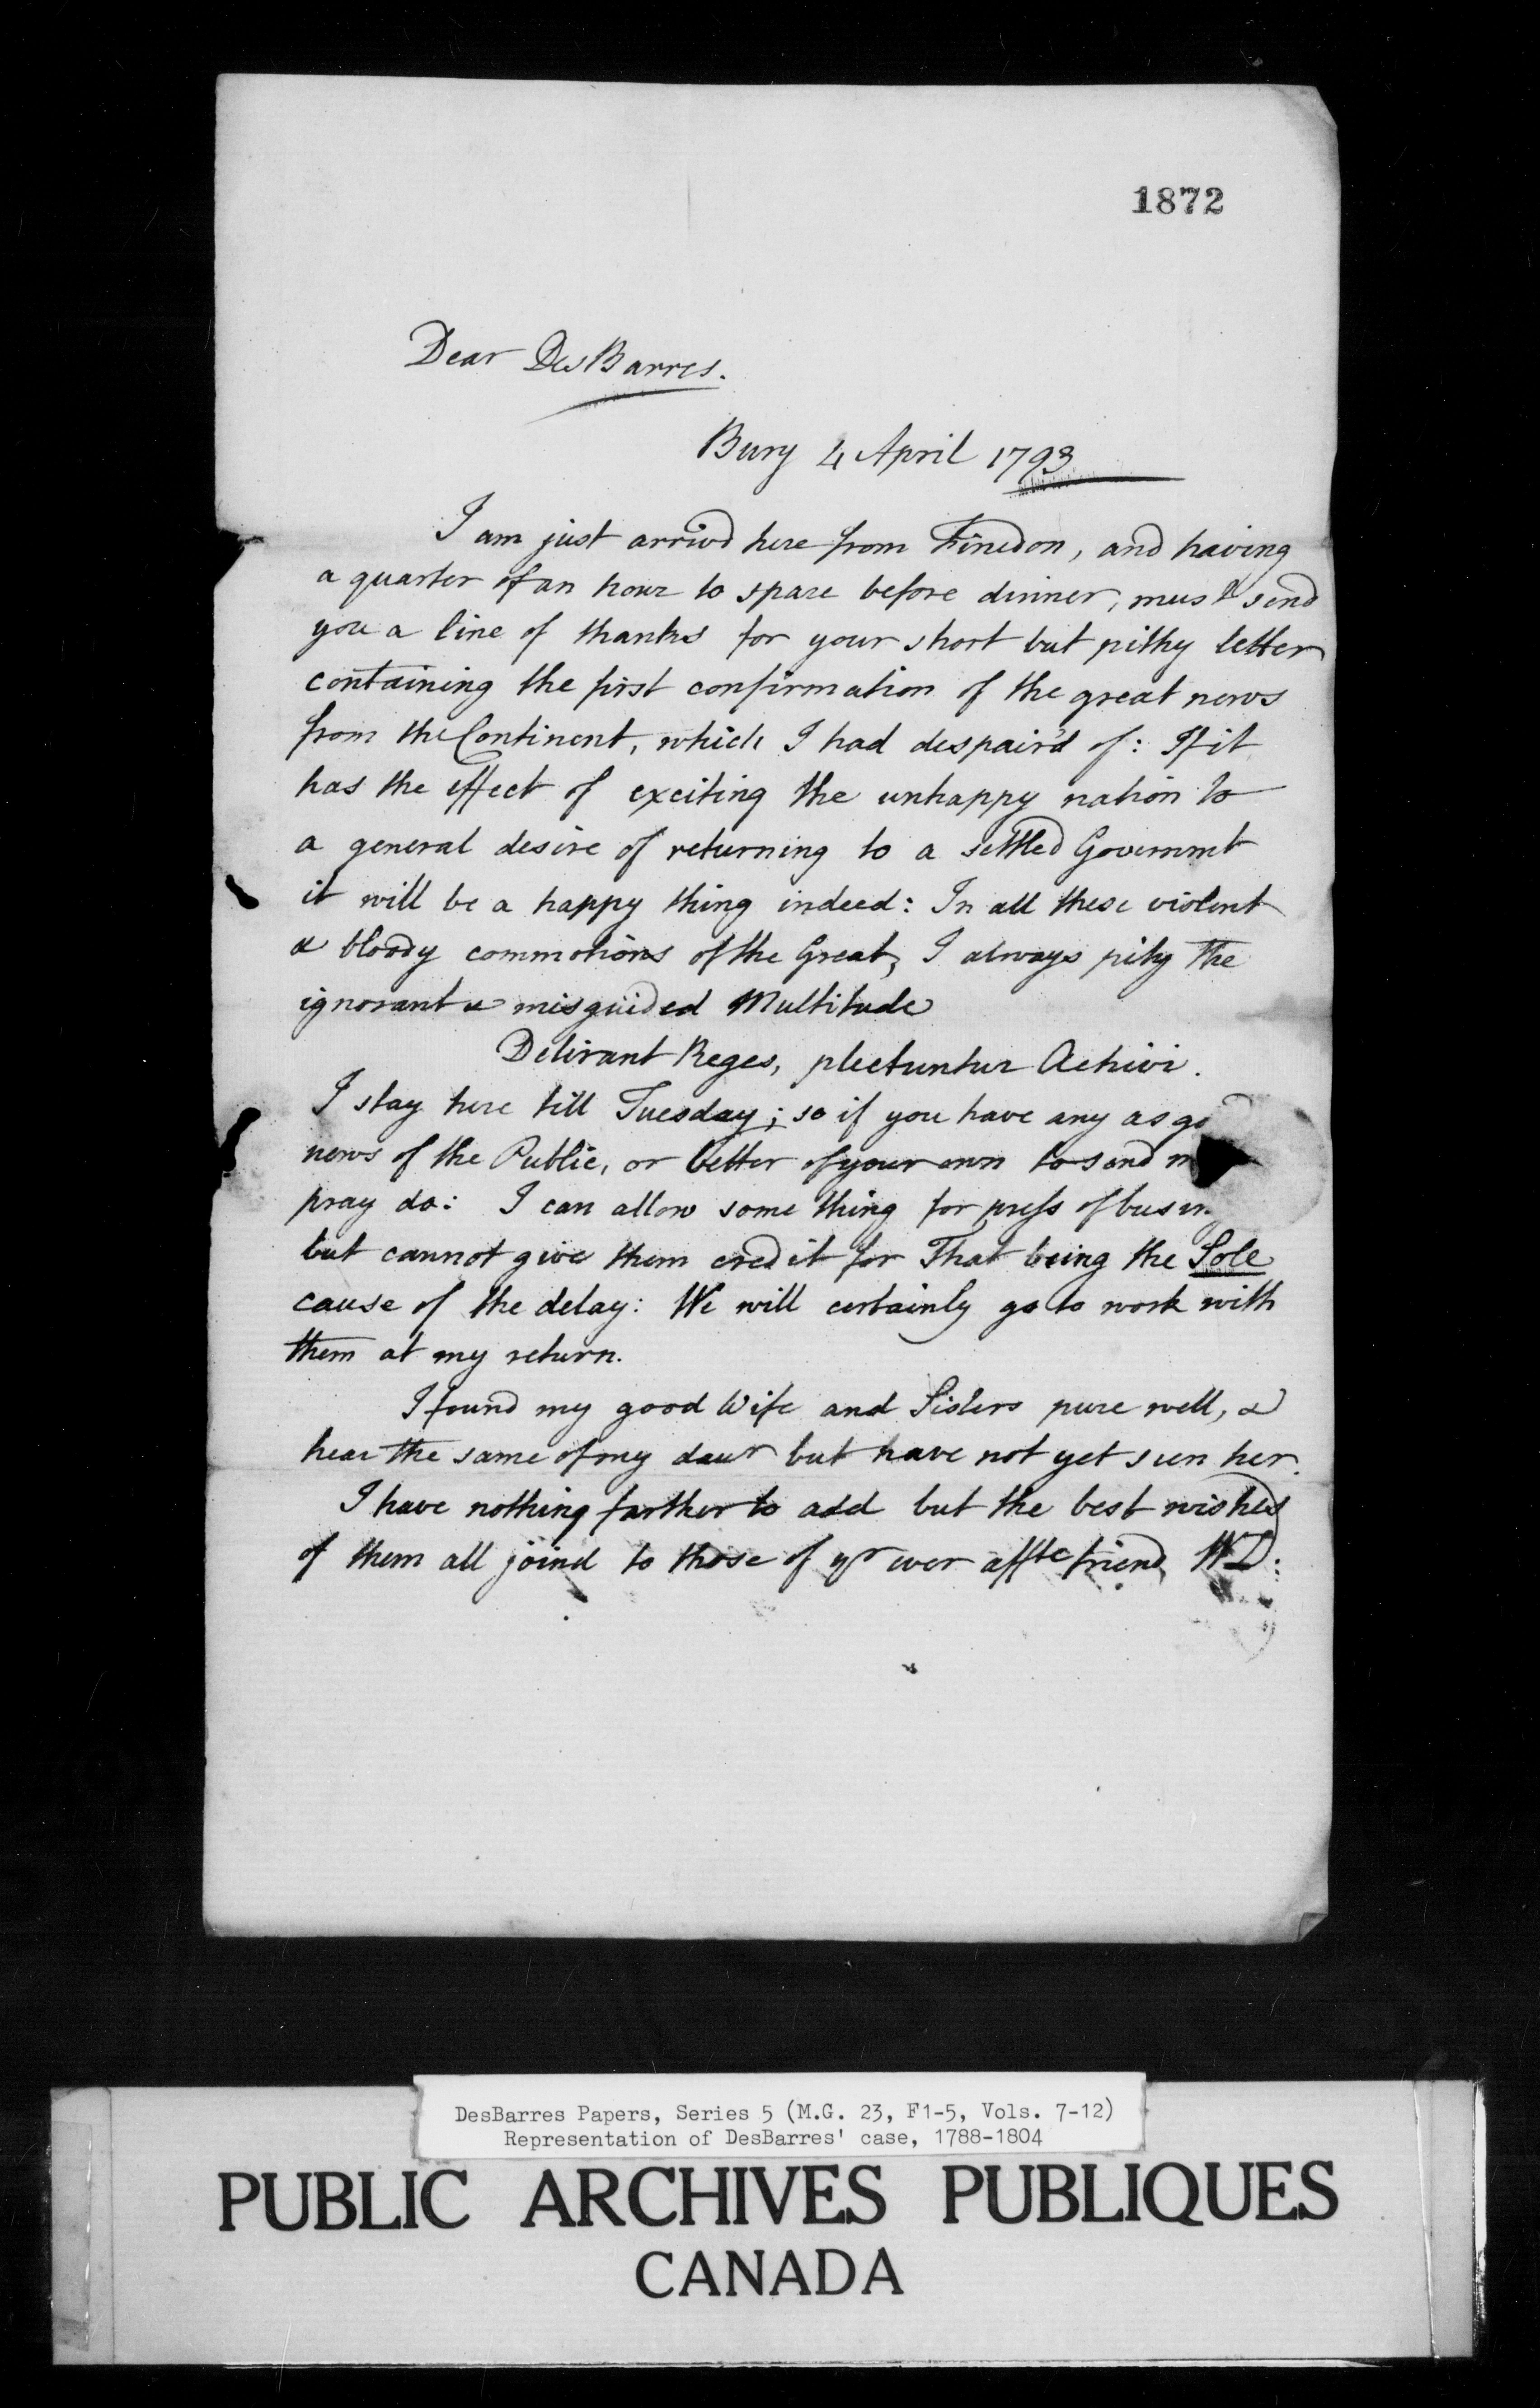 1872
Dear DesBarres.
Bury 4 April 1793
I am just arrivd here from Finedon, and having
a quarter of an hour to spare before dinner, must send
you a line of thanks for your short but pithy letter
containing the first confirmation of the great news
from the Continent, which I had despair'd of: If it
has the effect of exciting the unhappy nation to
a general desire of returning to a settled Governmt
it will be a happy thing indeed: In all these violent
& bloody commotions of the Great, I always pity the
ignorant & misguided Multitude
Delirant Reges, plectuntur Achivi.
I stay here till Tuesday; so if you have any as go
news of the Public, or better of your own to send m
pray do: I can allow some thing for press of busin
but cannot give them credit for That being the Sole
cause of the delay: We will certainly go to work with
them at my return.
I found my good Wife and Sisters pure well, &
hear the same of my daur but have not yet seen her.
I have nothing farther to add but the best wishes
of them all joind to those of yr ever affte friend WD:
DesBarres Papers, Series 5 (M.G. 23, F1-5, Vols. 7-12)
Representation of DesBarres' case, 1788-1804
PUBLIC ARCHIVES PUBLIQUES
CANADA